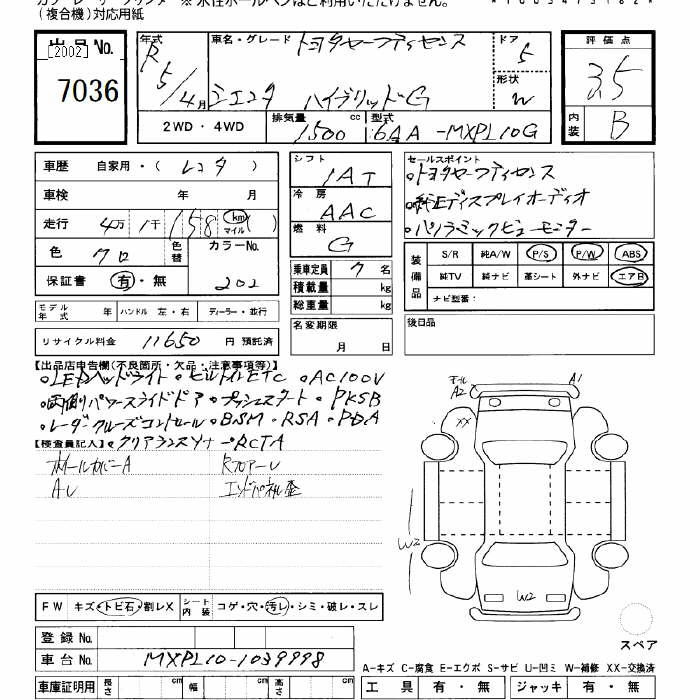 (複合機)対応用紙
出品No.
[2002]
7036
年式 R5/4月
車名・グレード トヨタセーフティセンス
シエンタ ハイブリッドG
ドア 5
形状 W
評価点 3.5
内装 B
2WD ・ 4WD
排気量 1500 cc
型式 6AA-MXPL10G
車歴 自家用・( レンタ )
車検 年 月
走行 4万 1千 158 km マイル ( )
色 クロ 色替 カラーNo. 202
保証書 有・無
モデル年式 年 ハンドル 左・右 ディーラー・並行
リサイクル料金 11650 円 預託済
シフト 1AT
冷房 AAC
燃料 G
乗車定員 7 名
積載量 kg
総重量 kg
名変期限 月 日
セールスポイント
・トヨタセーフティセンス
・純正ディスプレイオーディオ
・パノラミックビューモニター
装備品 S/R 純A/W P/S P/W ABS
純TV 純ナビ 革シート 外ナビ エアB
ナビ型番:
後日品
【出品店申告欄(不良箇所・欠品・注意事項等)】
・LEDヘッドライト・ビルトインETC ・AC100V
・両側パワースライドドア・プッシュスタート・PKSB
・レーダークルーズコントロール・BSM・RSA・PDA
【検査員記入】・クリアランスソナー・RCTA
ホイールカバーA RフロアーU
AU エンドパネル歪
モール A2
A1
XX
W2
W2
FW キズ・トビ石・割レX シート内装 コゲ・穴・汚レ・シミ・破レ・スレ
登録No.
車台No. MXPL10-1039998
スペア
A-キズ C-腐食 E-エクボ S-サビ U-凹ミ W-補修 XX-交換済
車庫証明用 長さ cm 幅 cm 高さ cm
工具 有・無 ジャッキ 有・無